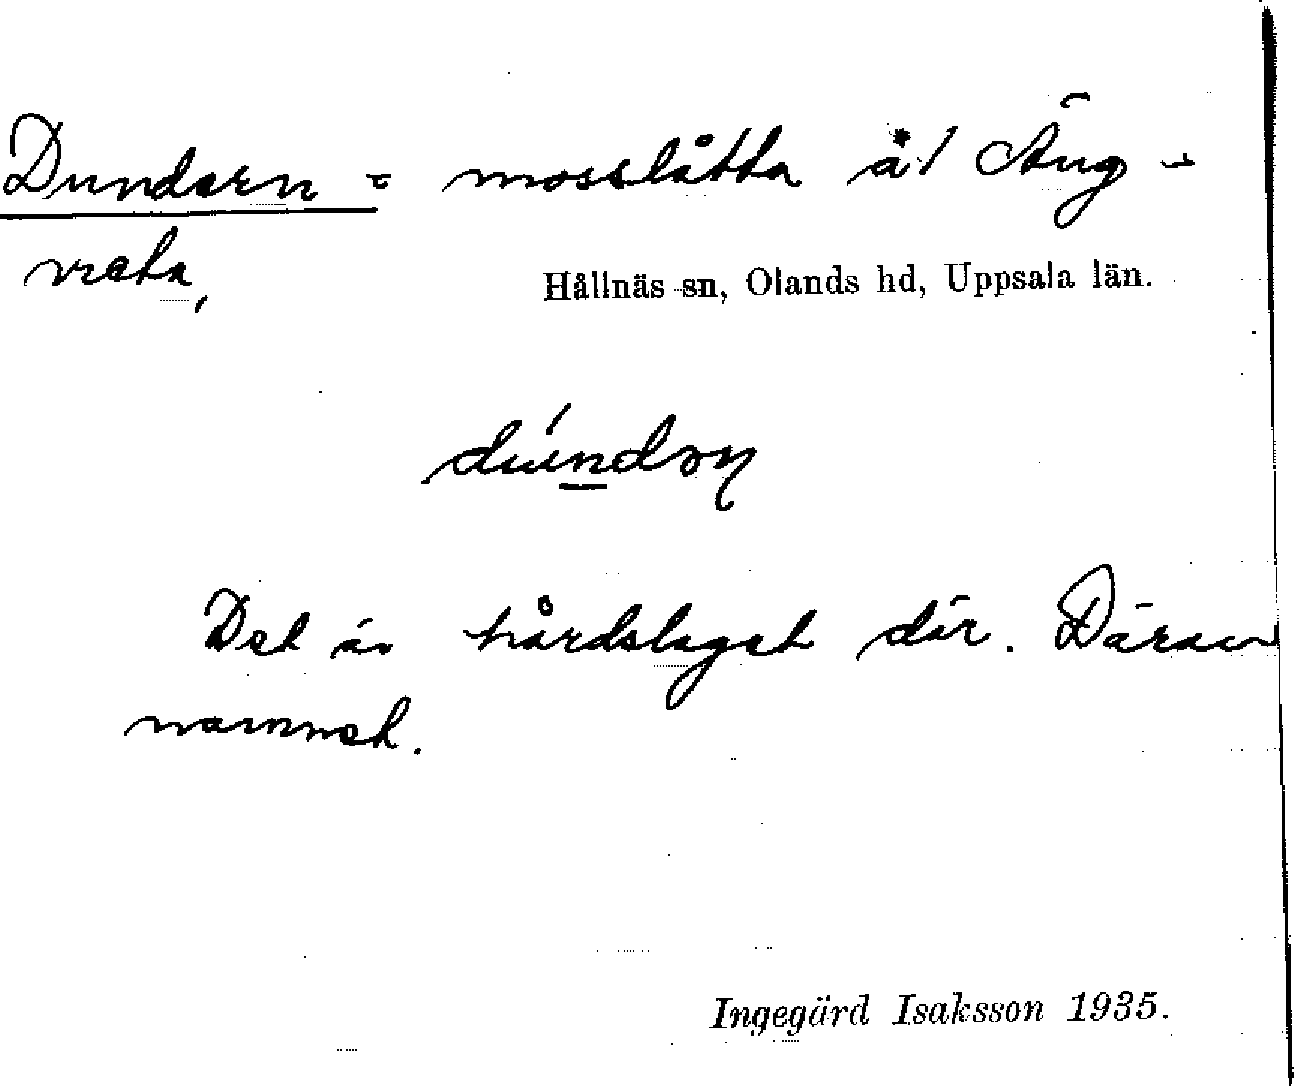 Dundern = mosslåtta å/ Äng-
vreta,
Hållnäs sn, Olands hd, Uppsala län.
Det är hårdslaget där. Därav
namnet.
Ingegärd Isaksson 1935.